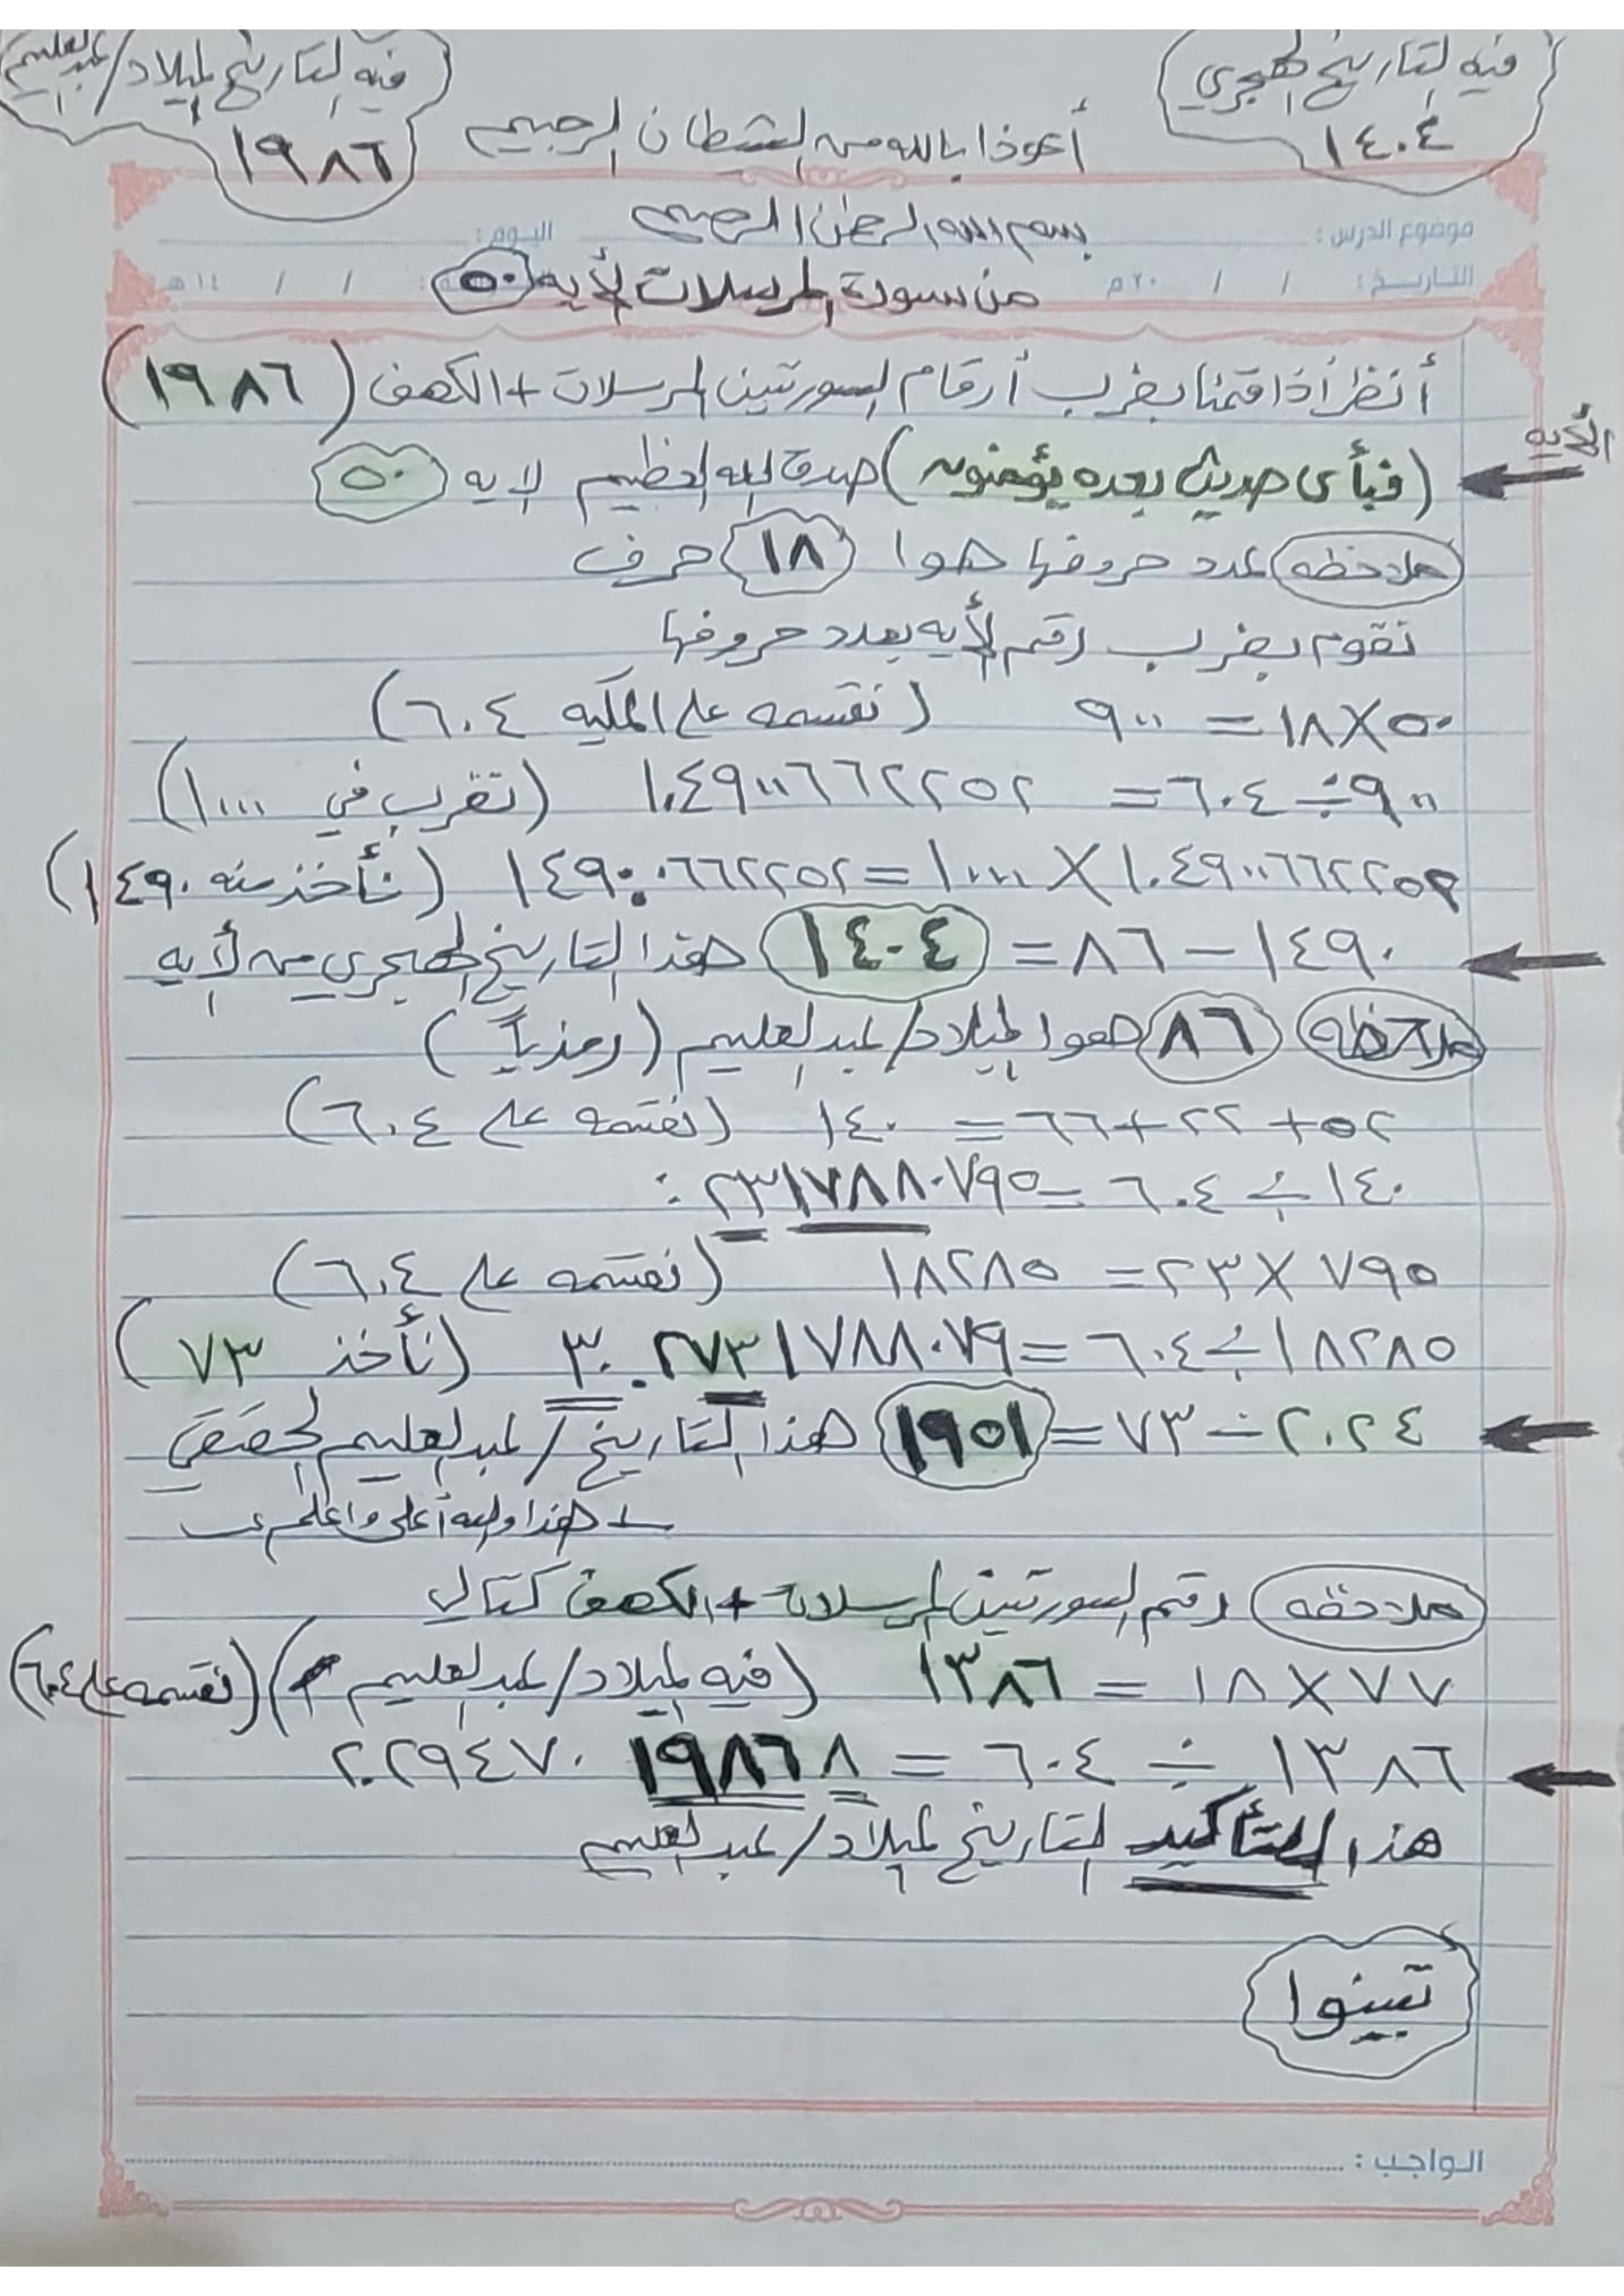 فيه التاريخ الهجري
١٤٠٤
فيه التاريخ لميلاد/عبدالعليم
١٩٨٦
أعوذا بالله من الشطان الرجيم
بسم الله الرحمن الرحيم
موضوع الدرس :
اليوم :
من سورة المرسلات لأيه ٥٠
التاريخ : / / ٢٠م
/ / ١٤هـ
أنظر أذا قمنا بضرب أرقام السورتين المرسلات + الكهف (١٩٨٦)
الأيه
(فبأى حديث بعده يؤمنون) صدق الله العظيم لايه ٥٠
ملاحظه عدد حروفها هوا ١٨ حرف
نقوم بضرب رقم لأيه بعدد حروفها
٥٠×١٨ = ٩٠٠ (نقسمه على المكيه ٦٠٤)
٩٠٠÷٦٠٤ = ١.٤٩٠٠٦٦٢٢٥٢ (تضرب في ١٠٠٠)
١.٤٩٠٠٦٦٢٢٥٢ × ١٠٠٠ = ١٤٩٠.٠٦٦٢٢٥٢ (نأخذ منه ١٤٩٠)
١٤٩٠ – ٨٦ = ١٤٠٤ هذا التاريخ الهجري من لأيه
ملاحظه ٨٦ هوا لميلاد/عبدالعليم (رمزياً)
٥٢ + ٢٢ + ٦٦ = ١٤٠ (نقسمه على ٦٠٤)
١٤٠ ÷ ٦٠٤ = ٢٣١٧٨٨٠٧٩٥.
٧٩٥ × ٢٣ = ١٨٢٨٥ (نقسمه على ٦٠٤)
١٨٢٨٥ ÷ ٦٠٤ = ٣٠.٢٧٣١٧٨٨٠٧٩ (نأخذ ٧٣)
٢٠٢٤ – ٧٣ = ١٩٥١ هذا التاريخ/عبدالعليم الحقيقي
هذا والله أعلى واعلم
ملاحظه رقم السورتين المرسلات + الكهف كتالي
٧٧ × ١٨ = ١٣٨٦ (فيه لميلاد/عبدالعليم) (نقسمه على ٦٠٤)
١٣٨٦ ÷ ٦٠٤ = ٢.٢٩٤٧٠١٩٨٦٨
هذا التأكيد لتاريخ لميلاد/عبدالعليم
تبينوا
الواجب :